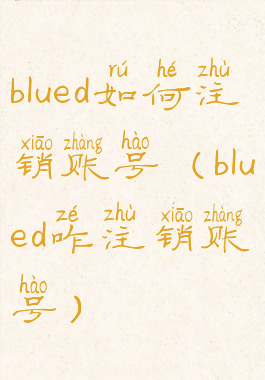 rú hé zhù
blued如何注
xiāo zhàng hào
销账号(blu
zé zhù xiāo zhàng
ed咋注销账
hào
号)